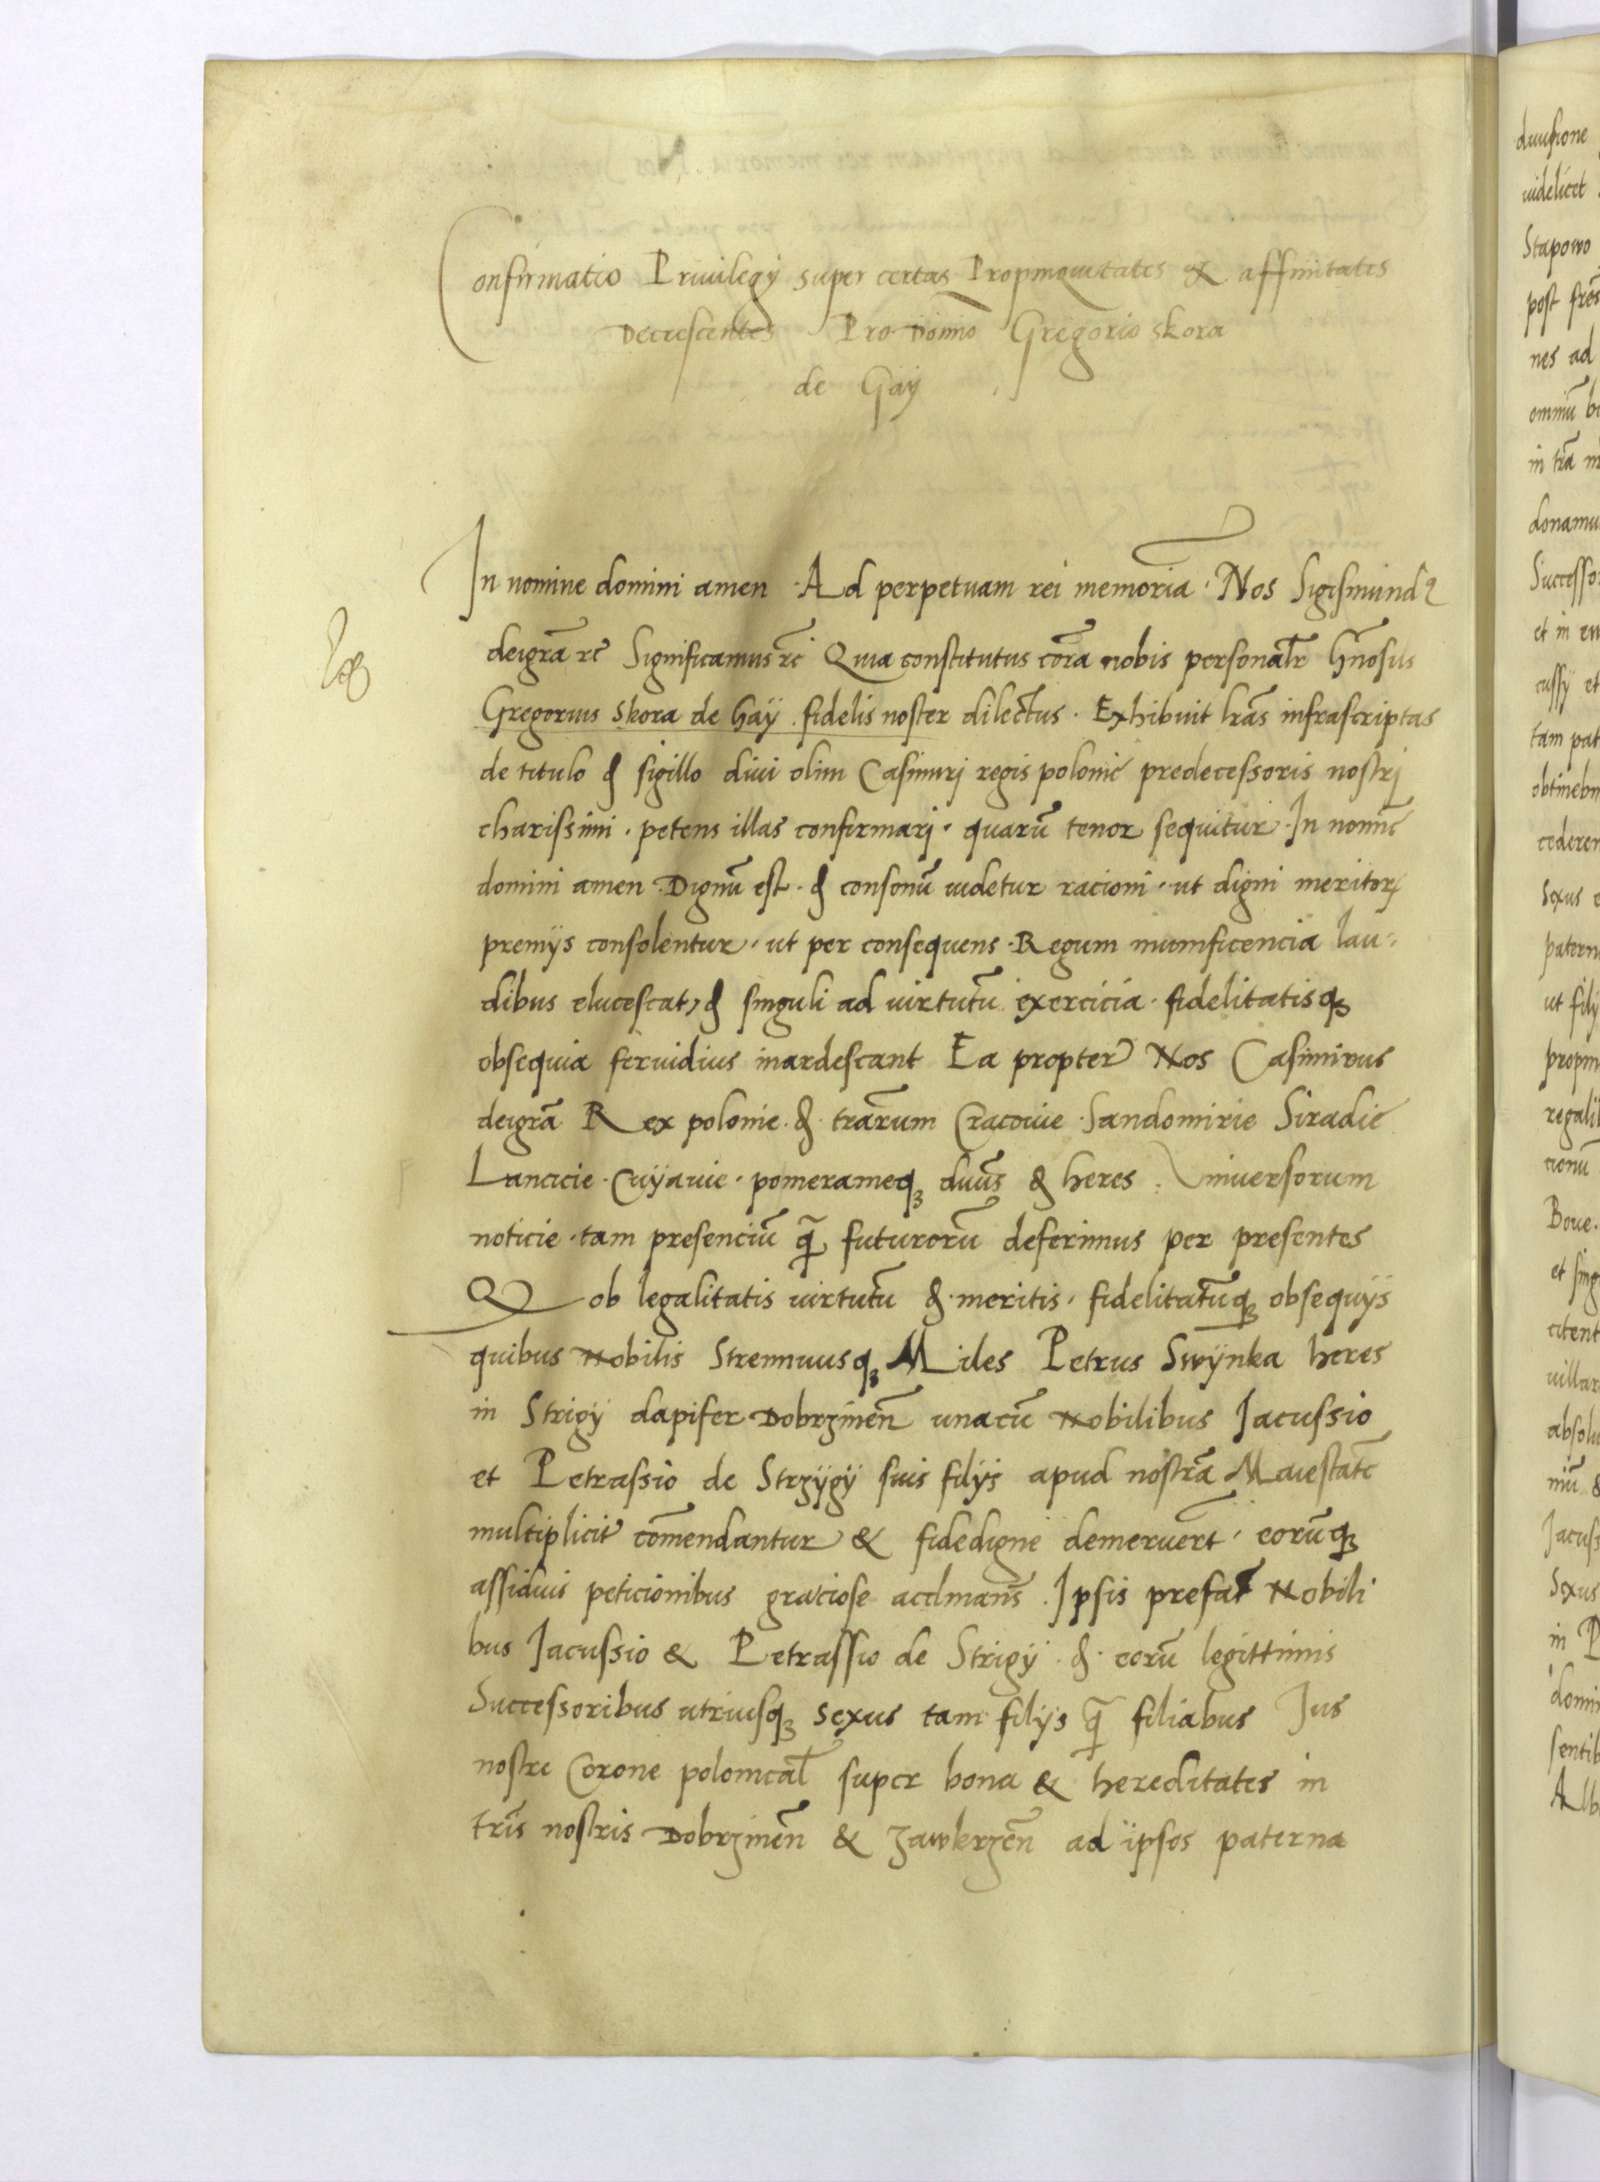 Confirmatio Priuilegÿ super certas Propinquitates & affinitates
Decrescentes Pro Domino Gregorio Skora
de Gaÿ
In nomine domini amen · Ad perpetuam rei memoria · Nos Sigismundꝰ
deigrã rc̃ Significamus rc̃ Quia constitutus corã nobis personalr̃ Gñosus
Gregorius Skora de Gaÿ · fidelis noster dilectus · Exhibuit lrãs infrascriptas
de titulo & sigillo diui olim Casimirj regis polonie predecessoris nostrj
charissimi · petens illas confirmarj · quarũ tenor sequitur · In nomiẽ
domini amen · Dignũ est · & consonũ videtur racioni · ut digni meritorꝝ
premÿs consolentur · ut per consequens · Regum munificencia lau⸗
dibus elucescat, & singuli ad uirtutũ exercicia · fidelitatisqꝫ
obsequia feruidius inardescant Ea propter Nos Casimirus
deigrã Rex polonie · & · trãrum Cracouie · Sandomirie Siradie
Lancicie · Cuÿauie · pomeranieqꝫ dnũs & heres · Vniuersorum
noticie · tam presenciũ q̃ futurorũ deferimus per presentes
Q ob legalitatis uirtutũ & · meritis · fidelitatũqꝫ obsequÿs
quibus Nobilis Strennuusqꝫ Miles Petrus Swÿnka heres
in Strigÿ dapifer Dobrzineñ unacũ Nobilibus Jacussio
et Petrassio de Strzÿgÿ suis filÿs apud nostrã Maiestatẽ
multiplicit᷑ comẽndantur & fidedigne demeruert̃ · eorũqꝫ
assiduis peticionibus graciose acclinañs · Ipsis prefat̃ Nobili
bus Jacussio & Petrassio de Strigÿ · & · eorũ legittimis
Successoribus utriusqꝫ sexus tam filÿs q̃ filiabus Jus
nostre Corone polonical̃ super bona & hereditates in
trĩs nostris Dobrzineñ & Zawkrzeñ ad ipsos paterna
diuisione
uidelicet
Stapowo
post frẽs
nes ad
omniũ
in trã
donamu
et in
cussÿ et
tam pat
Sexus
patern
ut filÿ
ut sing
Boue ·
villar
absolu
Jacuss
Sexus
in P
domi